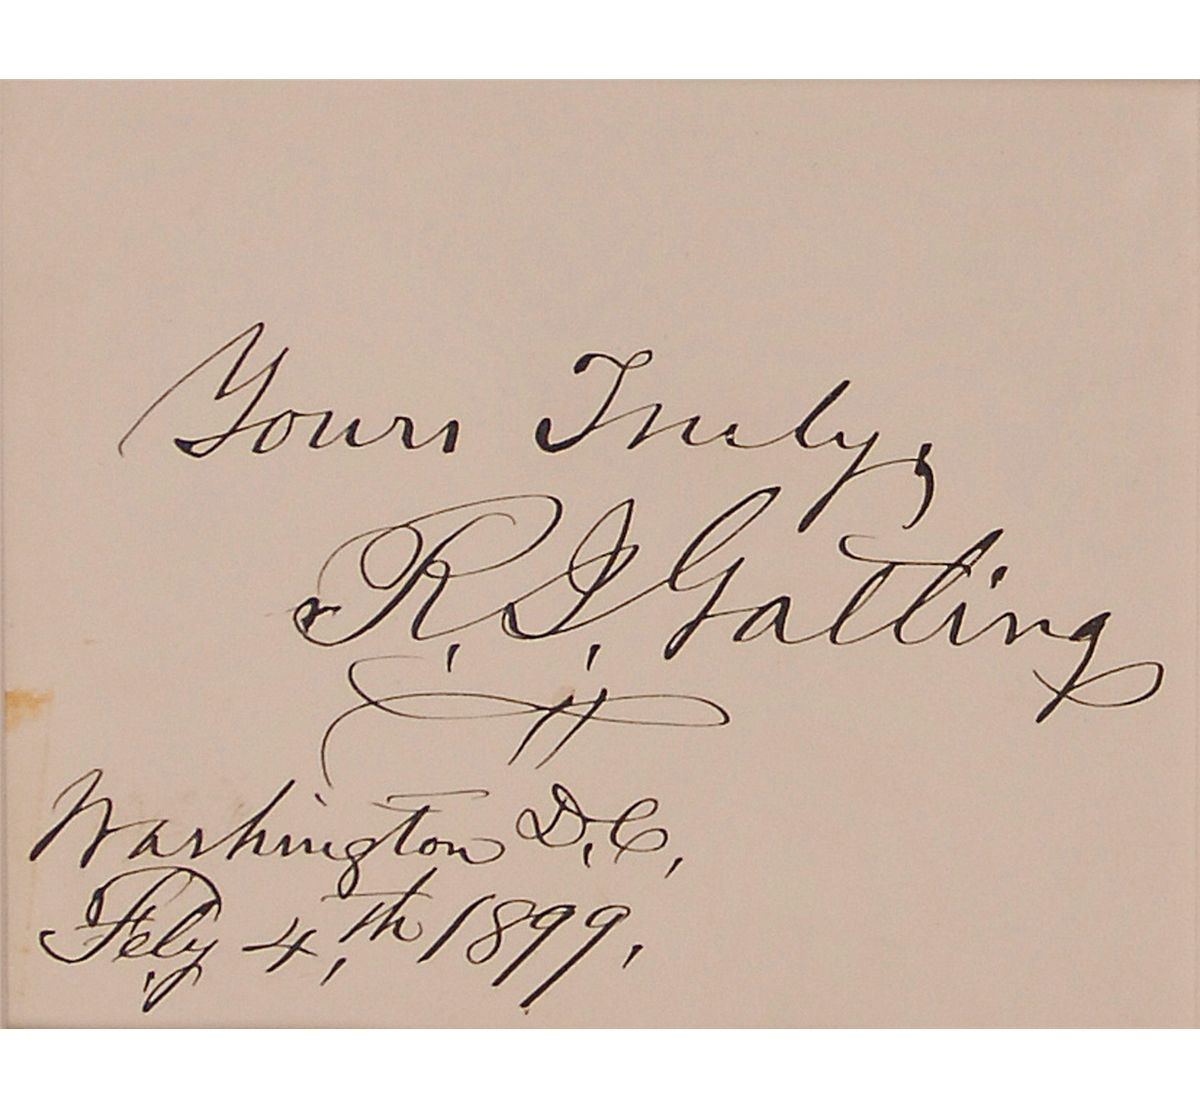 Yours Truly,
R. J. Gatling
Washington D.C.,
Feby 4,th 1899.